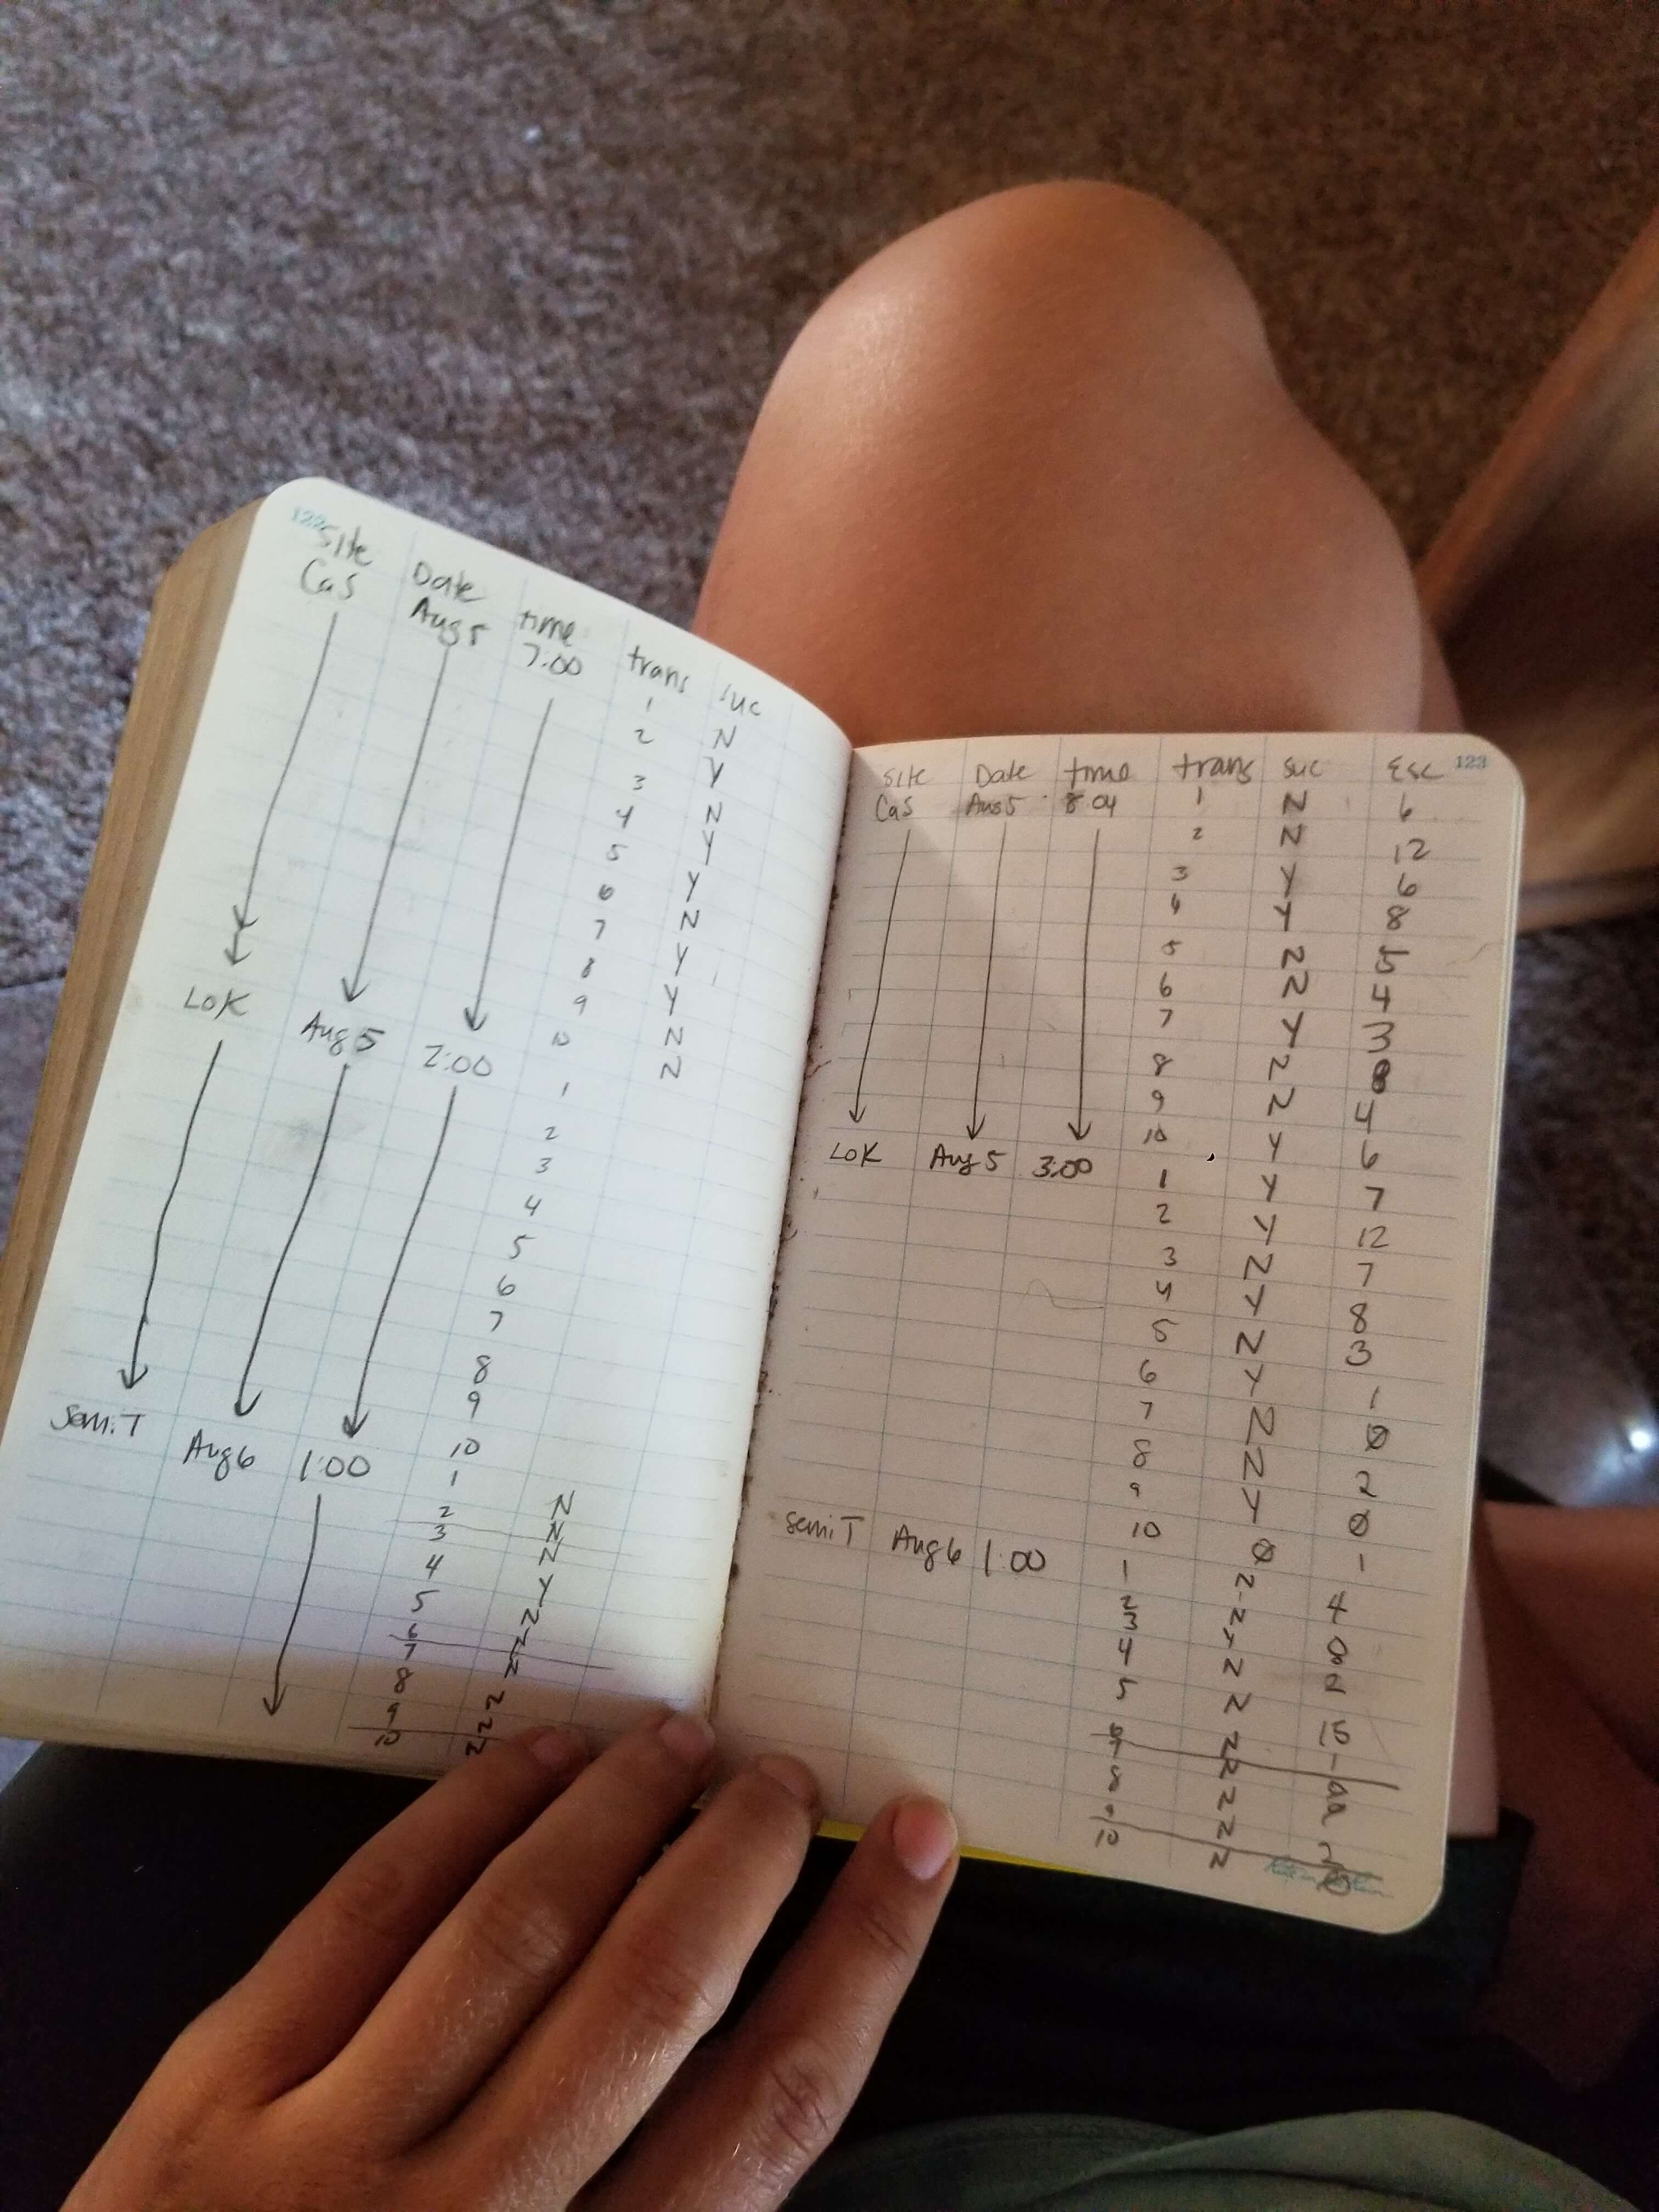 122
Site Date time trans suc
CaS Aug 5 7:00 1 N
2 Y
3 N
4 Y
5 Y
6 N
7 Y
8 Y
9 N
10 N
LOK Aug 5 2:00 1
2
3
4
5
6
7
8
9
10
Semi T Aug 6 1:00 1 N
2 N
3 N
4 Y
5 N
6 N
7 N
8 N
9 N
10 N
123
Site Date time trans suc Esc
CaS Aug 5 8:04 1 N 6
2 N 12
3 Y 6
4 Y 8
5 N 5
6 N 4
7 Y 3
8 N
9 N 4
10 Y 6
LOK Aug 5 3:00 1 Y 7
2 Y 12
3 N 7
4 Y 8
5 N 3
6 Y 1
7 N Ø
8 N 2
9 Y Ø
10 Ø 1
Semi T Aug 6 1:00 1 N 4
2 N
3 Y
4 N
5 N 15
6 N
7 N
8 N
9 N
10 N